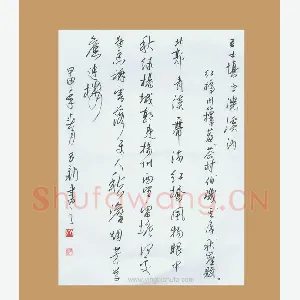 浣溪沙
红桥同箨庵茶村伯玑其年秋崖赋
北郭青溪一带流红桥风物眼中
秋绿杨城郭是扬州西望雷塘何处
是香魂零落使人愁澹烟芳草
旧迷楼
Shufawang.CN